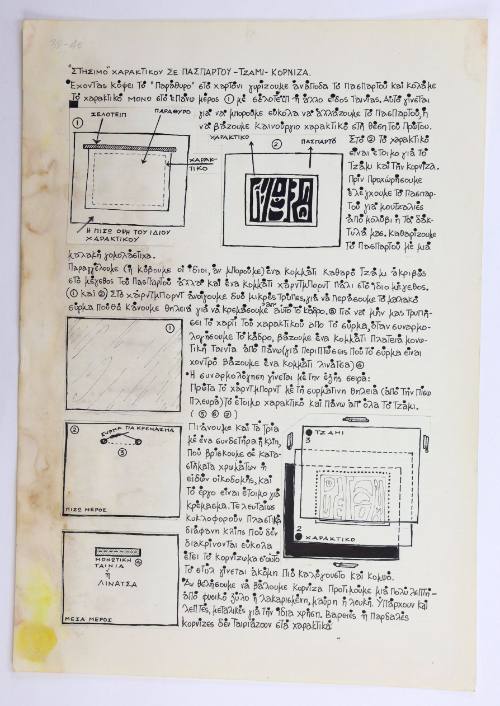 39-40
"ΣΤΗΣΙΜΟ" ΧΑΡΑΚΤΙΚΟΥ ΣΕ ΠΑΣΠΑΡΤΟΥ - ΤΖΑΜΙ - ΚΟΡΝΙΖΑ.
Έχοντας κόψει το "Παράθυρο" στο χαρτόνι γυρίζουμε ανάποδα το πασπαρτού και κολάμε
το χαρακτικό μόνο στο επάνω μέρος ① με σελοτέιπ ή άλλο είδος ταινίας. Αυτό γίνεται
για να μπορούμε εύκολα να αλλάζουμε το πασπαρτού, ή
να βάζουμε καινούργιο χαρακτικό στη θέση του πρώτου.
ΣΕΛΟΤΕΙΠ
ΠΑΡΑΘΥΡΟ
①
ΧΑΡΑΚ-
ΤΙΚΟ
Η ΠΙΣΩ ΟΨΗ ΤΟΥ ΙΔΙΟΥ
ΧΑΡΑΚΤΙΚΟΥ
ΧΑΡΑΚΤΙΚΟ
②
ΠΑΣΠΑΡΤΟ
Στο ② το χαρακτικό
είναι έτοιμο για το
τζάμι και την κορνίζα.
Πριν προχωρήσουμε
ελέγχουμε το πασπαρ-
τού για μουτζαλιές
από μολύβι ή τα δάκ-
τυλά μας. Καθαρίζουμε
το πασπαρτού με μια
μαλακή γομολάστιχα.
Παραγγέλουμε (ή κόβουμε οι ίδιοι, αν μπορούμε) ένα κομμάτι καθαρό τζάμι ακριβώς
στο μέγεθος του πασπαρτού αλλά και ένα κομμάτι χάρντμπορντ πάλι στο ίδιο μέγεθος.
① και ② Στο χάρντμπορντ ανοίγουμε δυό μικρές τρύπες, για να περάσουμε το μαλακό
σύρμα που θα κάνουμε θηλειά για να κρεμάσουμε αυτό το κάδρο. ③ Για να μην μας τρυπή-
σει το χαρτί του χαρακτικού από το σύρμα, όταν συναρμο-
λογήσουμε το κάδρο, βάζουμε ένα κομμάτι πλατειά μονω-
τική ταινία από πάνω (για περιπτώσεις που το σύρμα είναι
χοντρό βάζουμε ένα κομμάτι λινάτσα) ④
Η συναρμολόγηση γίνεται με την εξής σειρά:
Πρώτα το χάρντμπορντ με τη συρμάτινη θηλειά (από την πίσω
πλευρά) το έτοιμο χαρακτικό και πάνω απ' όλα το τζάμι.
( ⑤ ⑥ ⑦ )
①
②
ΣΥΡΜΑ ΓΙΑ ΚΡΕΜΑΣΜΑ
③
ΠΙΣΩ ΜΕΡΟΣ
④
ΜΟΝΩΤΙΚΗ
ΤΑΙΝΙΑ
ή
ΛΙΝΑΤΣΑ
ΜΕΣΑ ΜΕΡΟΣ
Πιάνουμε και τα τρία
με ένα συνδετήρα ή κλιπ,
που βρίσκουμε σε κατα-
στήματα χρωμάτων ή
ειδών οικοδομής, και
το έργο είναι έτοιμο για
κρέμασμα. Τελευταίως
κυκλοφορούν πλαστικά
διάφανη κλιπς που δεν
διακρίνονται εύκολα
έτσι το κορνίζωμα σ'αυτό
το στυλ γίνεται ακόμη πιό καλόγουστο και κομψό.
3 ΤΖΑΜΙ
2
ΧΑΡΑΚΤΙΚΟ
Αν θελήσουμε να βάλουμε κορνίζα. Προτιμούμε μιά πολύ λεπτή -
από φυσικό ξύλο ή λακαρισμένη, μαύρη ή λευκή. Υπάρχουν και
λεπτές, μεταλικές για την ίδια χρήση. Βαρειές ή παρδαλές
κορνίζες δεν ταιριάζουν στα χαρακτικά.